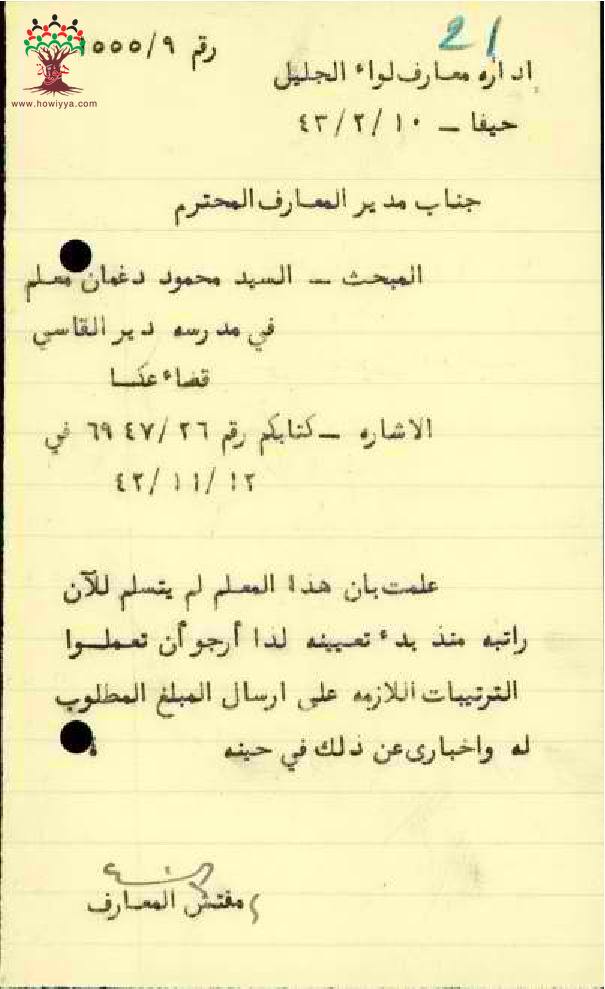 21
رقم ١٥٥٥/٩
www.howiyya.com
اداره معارف لواء الجليل
حيفا – ٤٣/٢/١٠
جناب مدير المعارف المحترم
المبحث – السيد محمود دغمان معلم
في مدرسه دير القاسي
قضاء عكا
الاشاره – كتابكم رقم ٦٩٤٧/٢٦ في
٤٢/١١/١٢
علمت بان هذا المعلم لم يتسلم للآن
راتبه منذ بدء تعيينه لذا أرجو أن تعملوا
الترتيبات اللازمه على ارسال المبلغ المطلوب
له واخبارى عن ذلك في حينه
مفتش المعارف